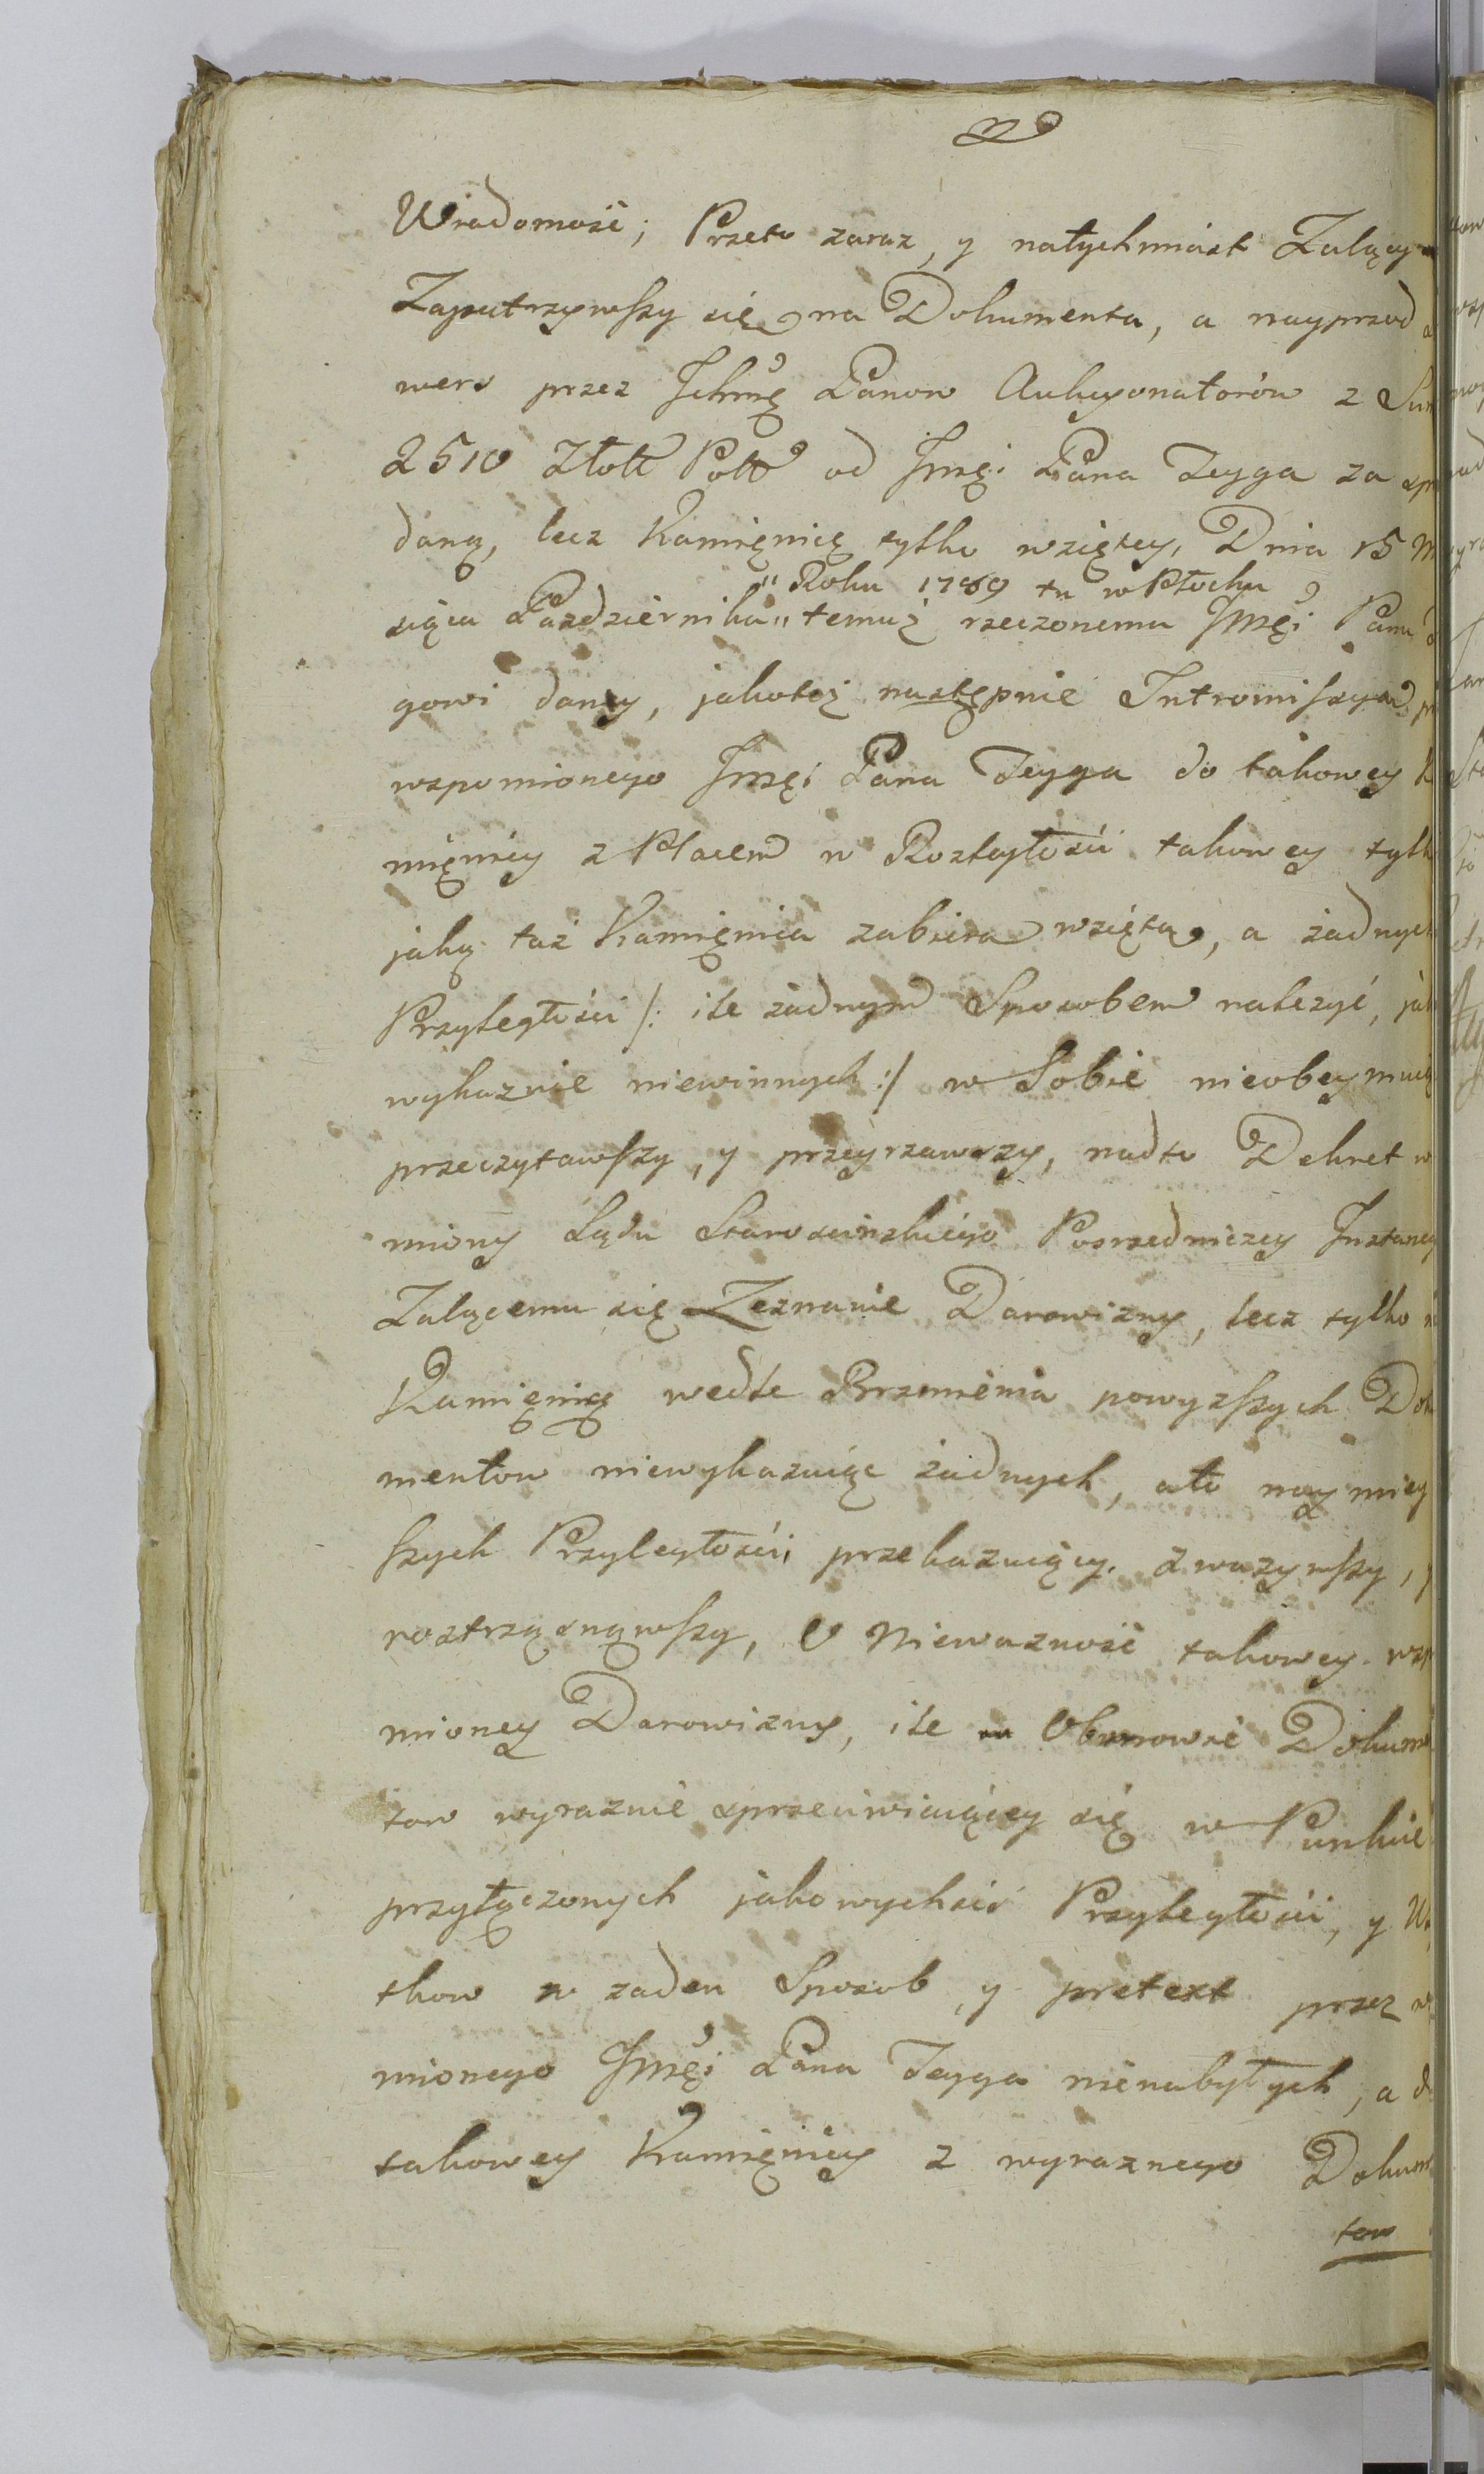 Wiadomość; Przeto zaraz, y natychmiast Żalący
Zapatrzywszy się na Dokumenta, a nayprzod
wers przez Ichmę Panow Aukcyonatorów z Sum
2510 Złott Poll od Jmęi Pana Zeyga za spr
daną, lecz Kamięnicę tylko wziętey, Dnia 15 M
siąca Pazdziernika „ temuż rzeczonemu Jmęi Panu
„ Roku 1789 tu w Płocku
gowi daney, jakoteż następnie Intromissya
wspomionego Jmęi Pana Zeyga do takowey K
mięnicy z Placem w Rozległości takowey tylk
jaką taż Kamięnica zabiera wzięta, a żadnych
Przyległości /: ile żadnym Sposobem należyć, jak
wykaznie niewinnych :/ w Sobie nieobeymuią
przeczytawszy, y przeyrzawszy, nadto Dekret w
miony Sądu Starościnskiego Posrzedniczey Instancy
Żalącemu się Zeznanie Darowizny, lecz tylko
Kamięnicę wedle Brzmienia powyzszych Dok
mentow niewykazuiąc żadnych, ato naymiey
szych Przyległości, przekazuiący. zwazywszy, y
roztrząsnąwszy, O Niewaznosć takowey wsp
mioney Darowizny, ile Obmowie Dokume
tow wyraznie sprzeciwiaiącey się w Punkcie
przyłączonych jakowychsiś Przyległości, y
tkow w zaden Sposob, y pretext przez w
mionego Jmęi Pana Zeyga nienabytych, a d
takowey Kamięnicy z wyraznego Dokum
tow